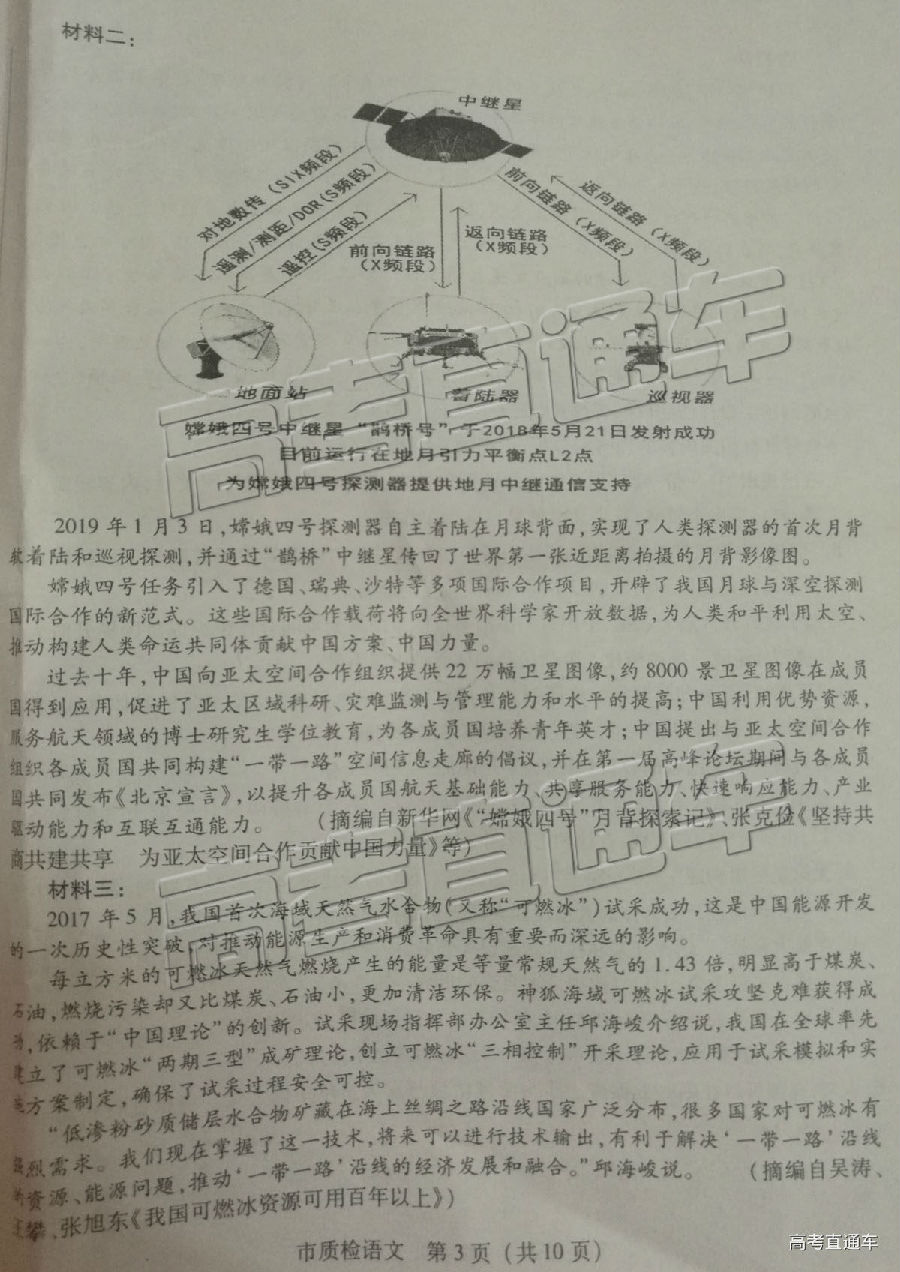 材料二：
中继星
对地数传（S|X频段）
遥测/测距/DOR(S频段)
遥控(S频段)
前向链路
（X频段）
返向链路
（X频段）
前向链路（X频段）
返向链路（X频段）
地面站
着陆器
巡视器
嫦娥四号中继星“鹊桥号”于2018年5月21日发射成功
目前运行在地月引力平衡点L2点
为嫦娥四号探测器提供地月中继通信支持
2019年1月3日,嫦娥四号探测器自主着陆在月球背面,实现了人类探测器的首次月背
软着陆和巡视探测,并通过“鹊桥”中继星传回了世界第一张近距离拍摄的月背影像图。
嫦娥四号任务引入了德国、瑞典、沙特等多项国际合作项目,开辟了我国月球与深空探测
国际合作的新范式。这些国际合作载荷将向全世界科学家开放数据,为人类和平利用太空、
推动构建人类命运共同体贡献中国方案、中国力量。
过去十年,中国向亚太空间合作组织提供22万幅卫星图像,约8000景卫星图像在成员
国得到应用,促进了亚太区域科研、灾难监测与管理能力和水平的提高;中国利用优势资源,
服务航天领域的博士研究生学位教育,为各成员国培养青年英才;中国提出与亚太空间合作
组织各成员国共同构建“一带一路”空间信息走廊的倡议,并在第一届高峰论坛期间与各成员
国共同发布《北京宣言》,以提升各成员国航天基础能力、共享服务能力、快速响应能力、产业
驱动能力和互联互通能力。 （摘编自新华网《“嫦娥四号”月背探索记》、张克俭《坚持共
商共建共享 为亚太空间合作贡献中国力量》等）
材料三：
2017年5月,我国首次海域天然气水合物(又称“可燃冰”)试采成功,这是中国能源开发
的一次历史性突破,对推动能源生产和消费革命具有重要而深远的影响。
每立方米的可燃冰天然气燃烧产生的能量是等量常规天然气的1.43倍,明显高于煤炭、
石油,燃烧污染却又比煤炭、石油小,更加清洁环保。神狐海域可燃冰试采攻坚克难获得成
功,依赖于“中国理论”的创新。试采现场指挥部办公室主任邱海峻介绍说,我国在全球率先
建立了可燃冰“两期三型”成矿理论,创立可燃冰“三相控制”开采理论,应用于试采模拟和实
施方案制定,确保了试采过程安全可控。
“低渗粉砂质储层水合物矿藏在海上丝绸之路沿线国家广泛分布,很多国家对可燃冰有
强烈需求。我们现在掌握了这一技术,将来可以进行技术输出,有利于解决‘一带一路’沿线
的资源、能源问题,推动‘一带一路’沿线的经济发展和融合。”邱海峻说。 （摘编自吴涛、
王攀、张旭东《我国可燃冰资源可用百年以上》）
市质检语文 第3页（共10页）
高考直通车
高考直通车
高考直通车